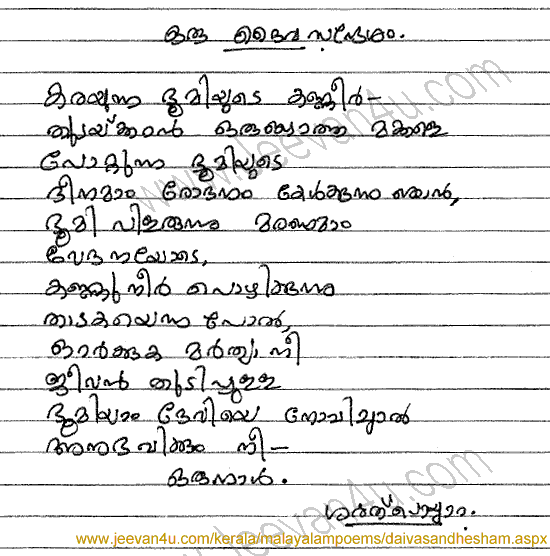 ഒരു ദൈവ സന്ദേശം.
കരയുന്ന ഭൂമിയുടെ കണ്ണീർ-
തുടയ്ക്കാൻ ഒരുങ്ങാത്ത മക്കളെ
പോറ്റുന്ന ഭൂമിയുടെ
ദീനമാം രോദനം കേൾക്കുന്നു ഞാൻ,
ഭൂമി പിളരുന്നു മരണമാം
വേദനയോടെ,
കണ്ണുനീർ പൊഴിക്കുന്നു
താടകയെന്ന പോൽ,
ഓർക്കുക മർത്യാ നീ
ജീവൻ തുടിപ്പുള്ള
ഭൂമിയാം ദേവിയെ നോവിച്ചാൽ
അനുഭവിക്കും നീ-
ഒരുനാൾ.
ശരത്
www.jeevan4u.com
www.jeevan4u.com
www.jeevan4u.com/kerala/malayalampoems/daivasandhesham.aspx